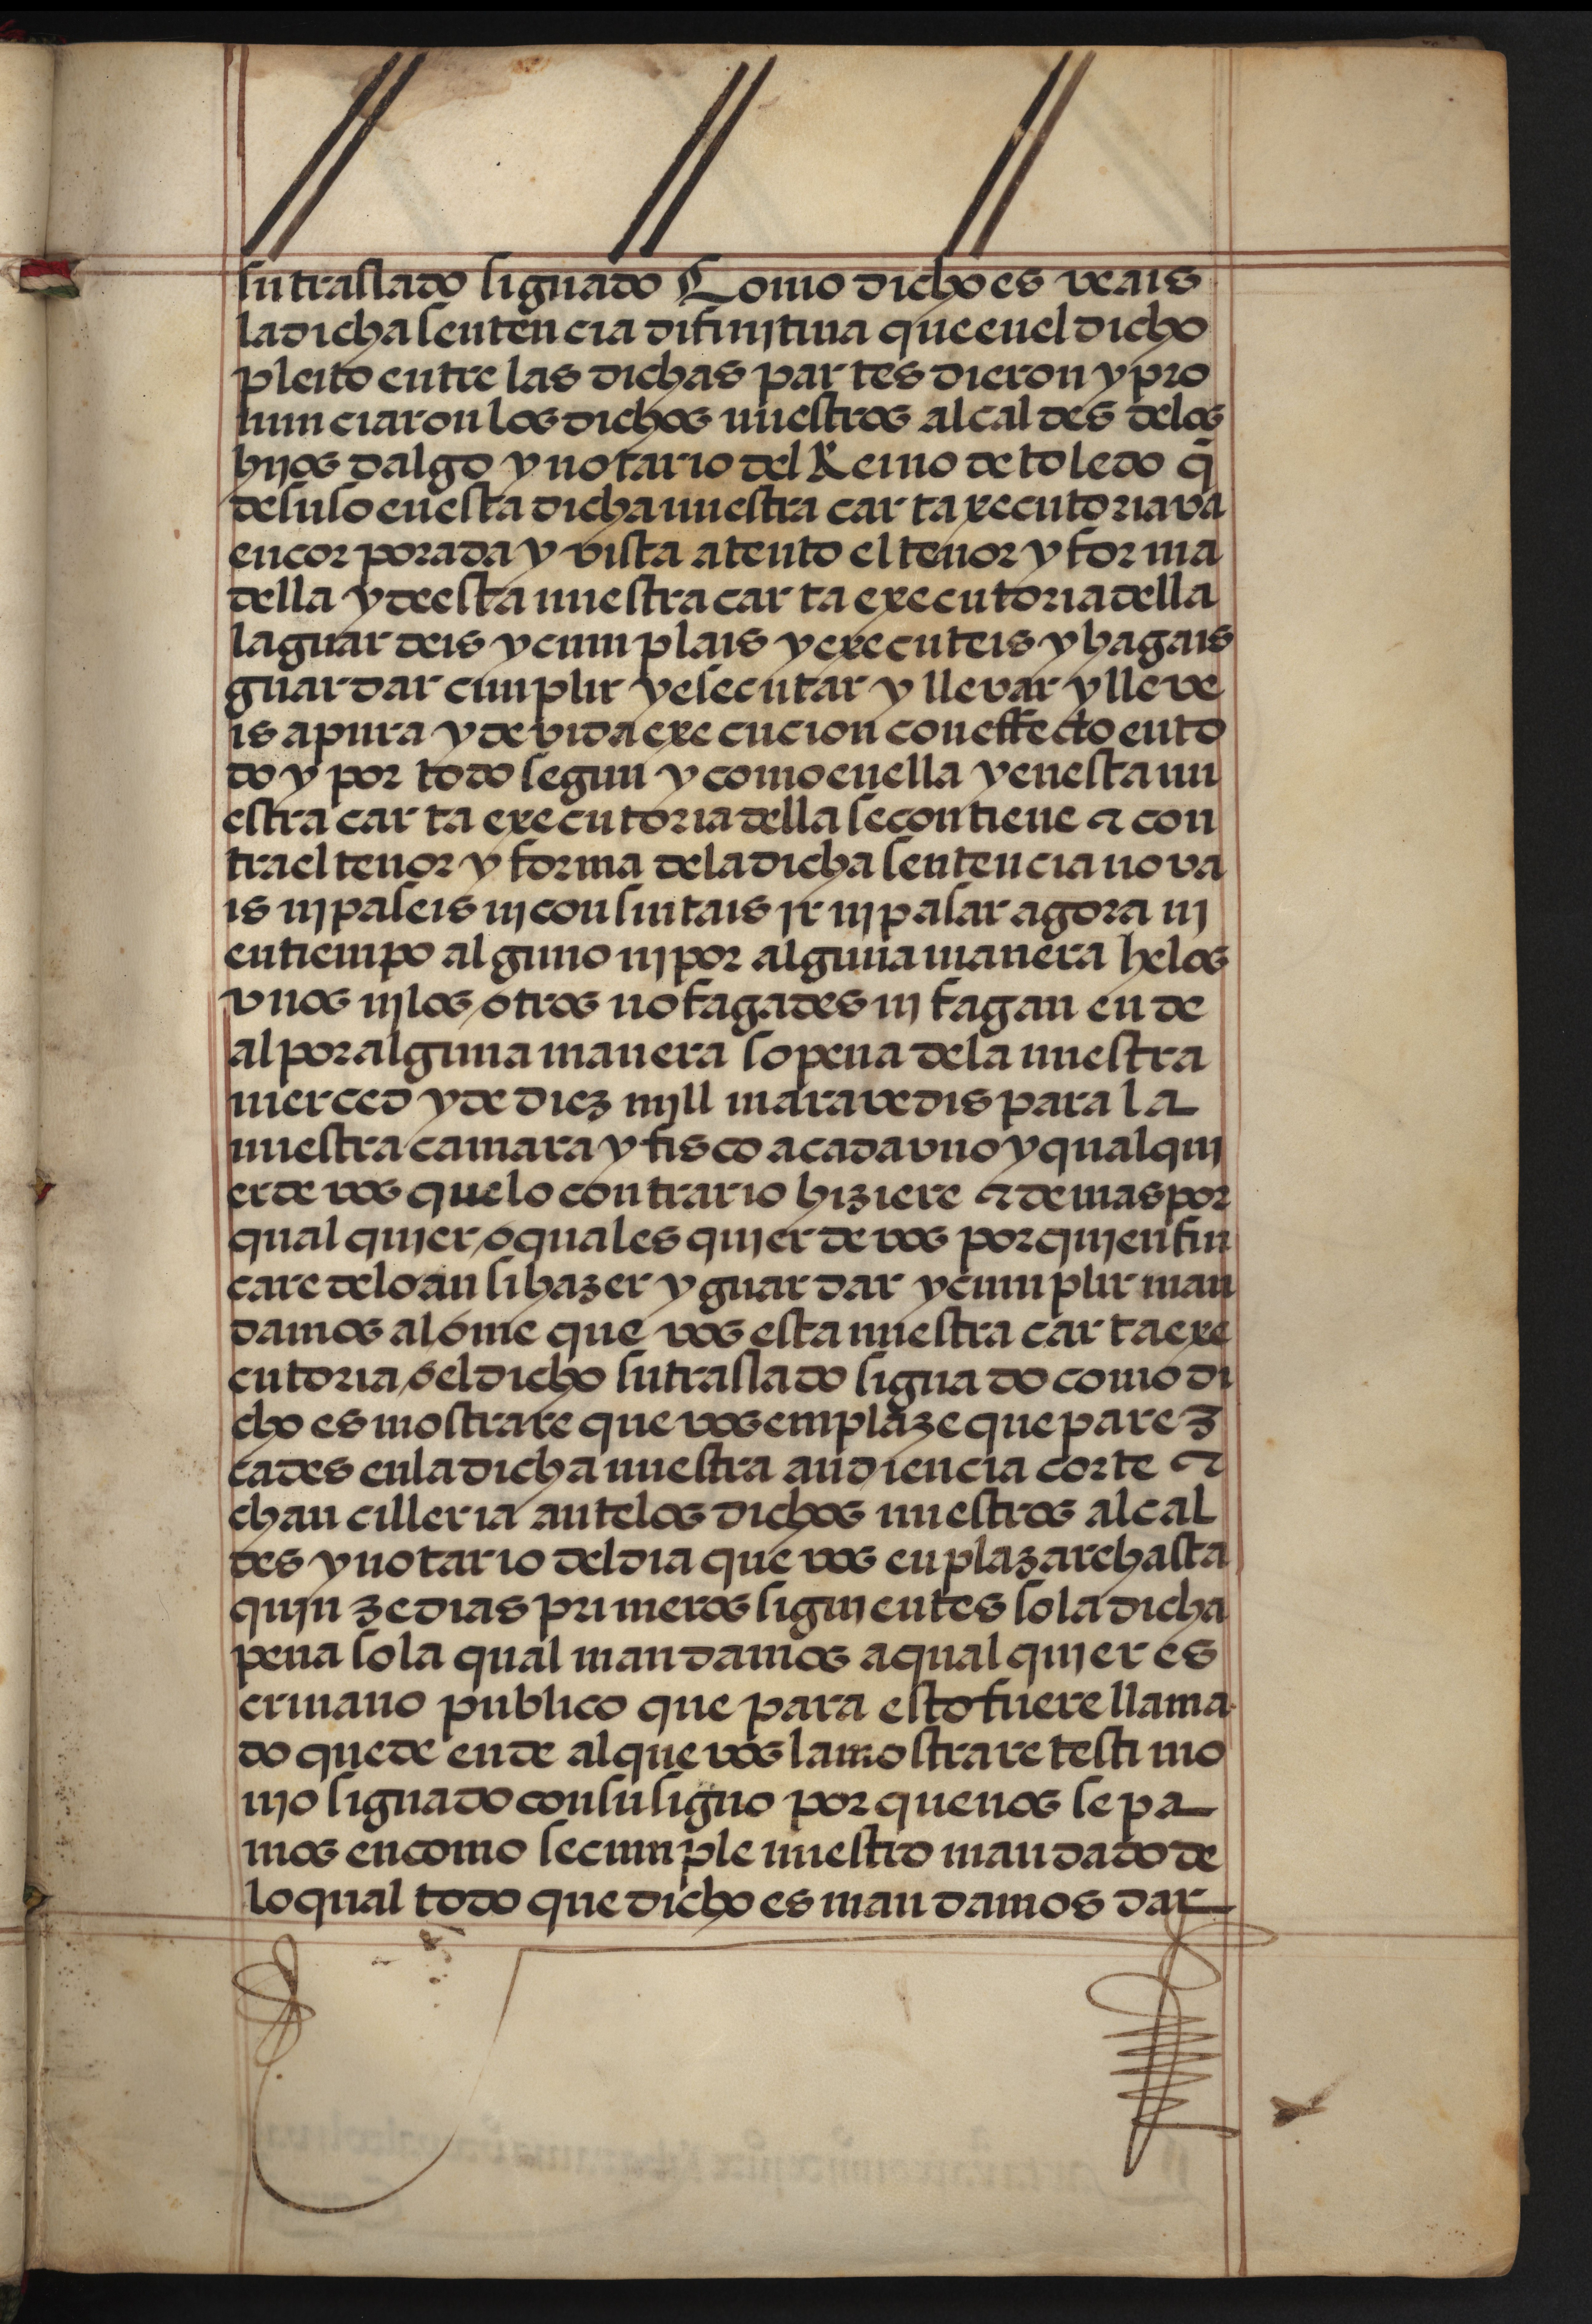 su traslado signado Como dicho es veais
la dicha sentencia difinjtiua que en el dicho
pleito entre las dichas partes dieron y pro
nunciaron los dichos nuestros alcaldes delos
hijos dalgo y notario del Reino de toledo q̃
desuso en esta dicha nuestra carta xecutoria va
encorporada y vista atento el tenor y forma
della y de esta nuestra carta executoria della
la guardeis y cumplais y executeis y hagais
guardar cumplir y esecutar y llevar y lleve
is a pura y devida execucion con effecto en to
do y por todo segun y como en ella y en esta nu
estra carta executoria della se contiene & con
tra el tenor y forma dela dicha sentencia no va
is nj paseis nj consintais jr nj pasar agora nj
en tiempo alguno nj por alguna manera he los
vnos nj los otros no fagades nj fagan en de
al por alguna manera so pena dela nuestra
merced y de diez mjll maravedis para la
nuestra camara y fisco a cada vno y qualqui
er de vos que lo contrario hiziere & demas por
qual quier o quales quier de vos por quien fin
care delo ansi hazer y guardar y cumplir man
damos al ome que vos esta nuestra carta exe
cutoria o el dicho su traslado signado como di
cho es mostrare que vos emplaze que parez
cades en la dicha nuestra audiencia corte &
chancilleria ante los dichos nuestros alcal
des y notario del dia que vos enplazare hasta
quinze dias primeros siguientes so la dicha
pena so la qual mandamos a qual quier es
crivano publico que para esto fuere llama
do que de en de al que vos la mostrare testimo
njo signado con su signo por que nos sepa
mos en como se cumple nuestro mandado de
lo qual todo que dicho es mandamos dar